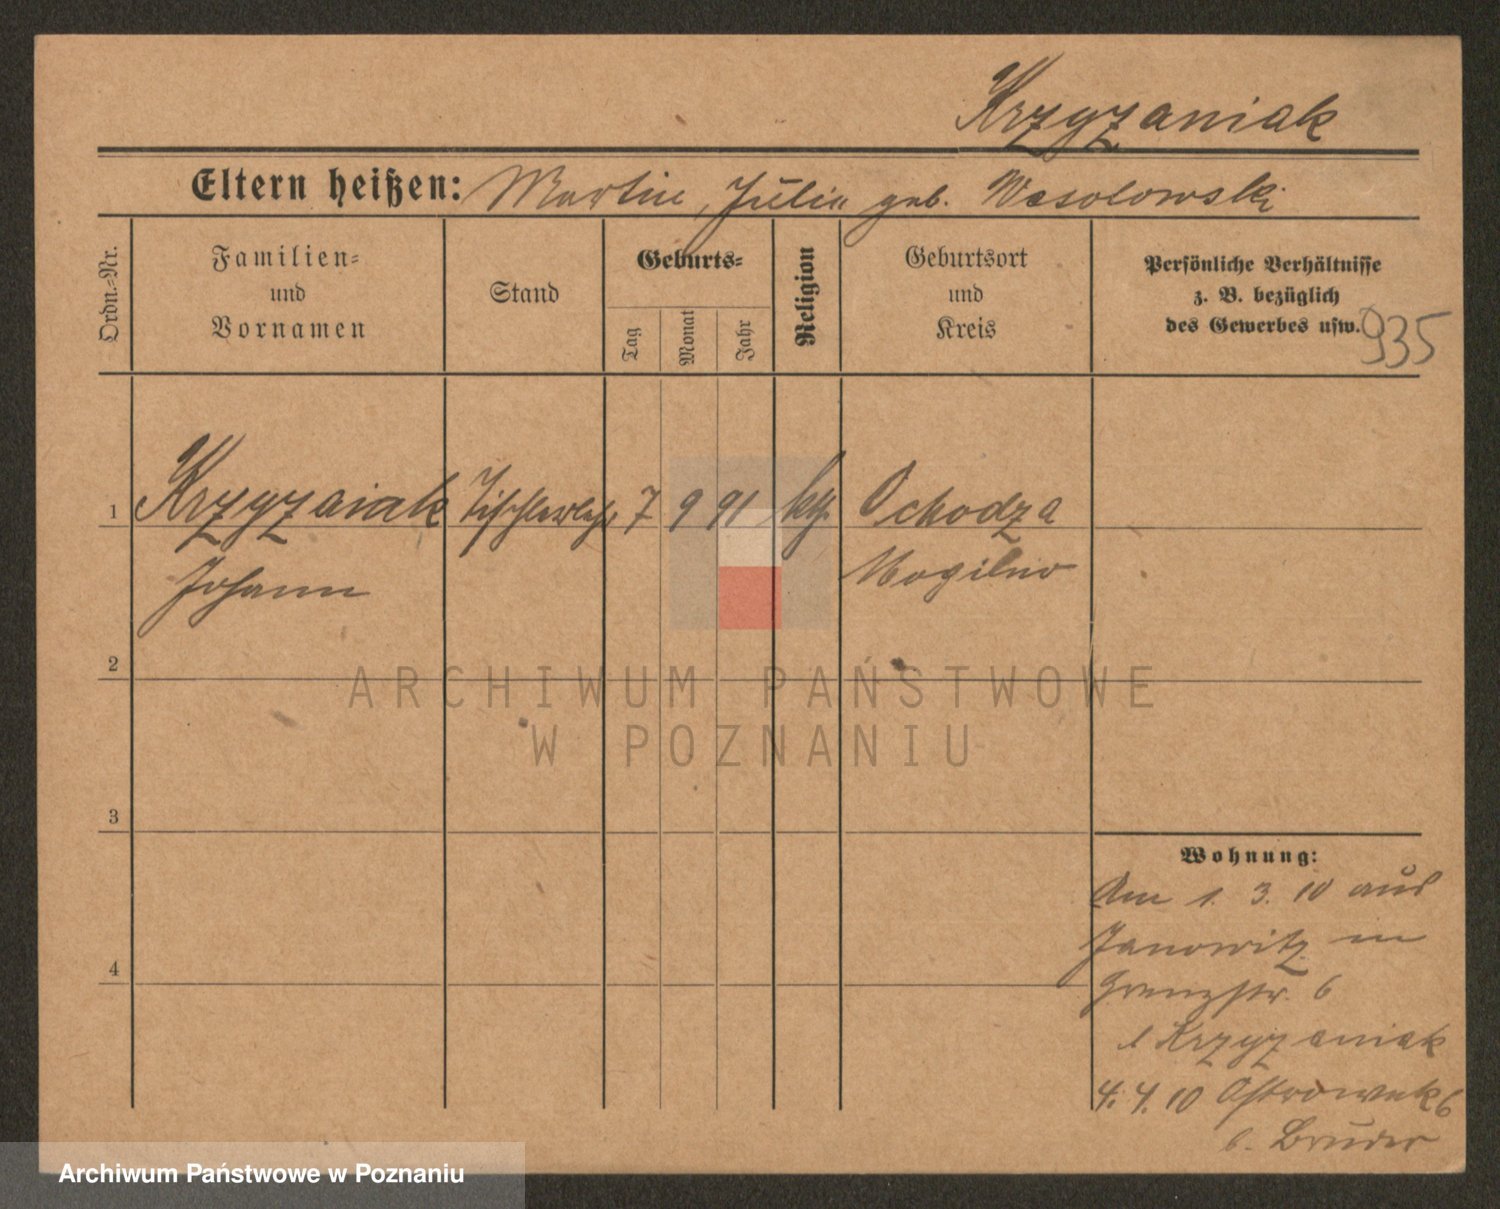 Krzyzaniak
Eltern heißen: Martin, Julia geb. Wesolowski
Ordn.-Nr.
Familien-
und
Vornamen
Stand
Geburts-
Tag
Monat
Jahr
Religion
Geburtsort
und
Kreis
Persönliche Verhältnisse
z. B. bezüglich
des Gewerbes usw.
935
1 Krzyzaniak Tischlerlehr 7 9 91 kth. Ochodza
Johann Mogilno
2
ARCHIWUM PAŃSTWOWE
W POZNANIU
3
Wohnung:
Am 1. 3. 10 aus
Janowitz in
4
Grenzstr. 6
Krzyzaniak
4. 4. 10 Ostrowek 6
b. Bruder
Archiwum Państwowe w Poznaniu